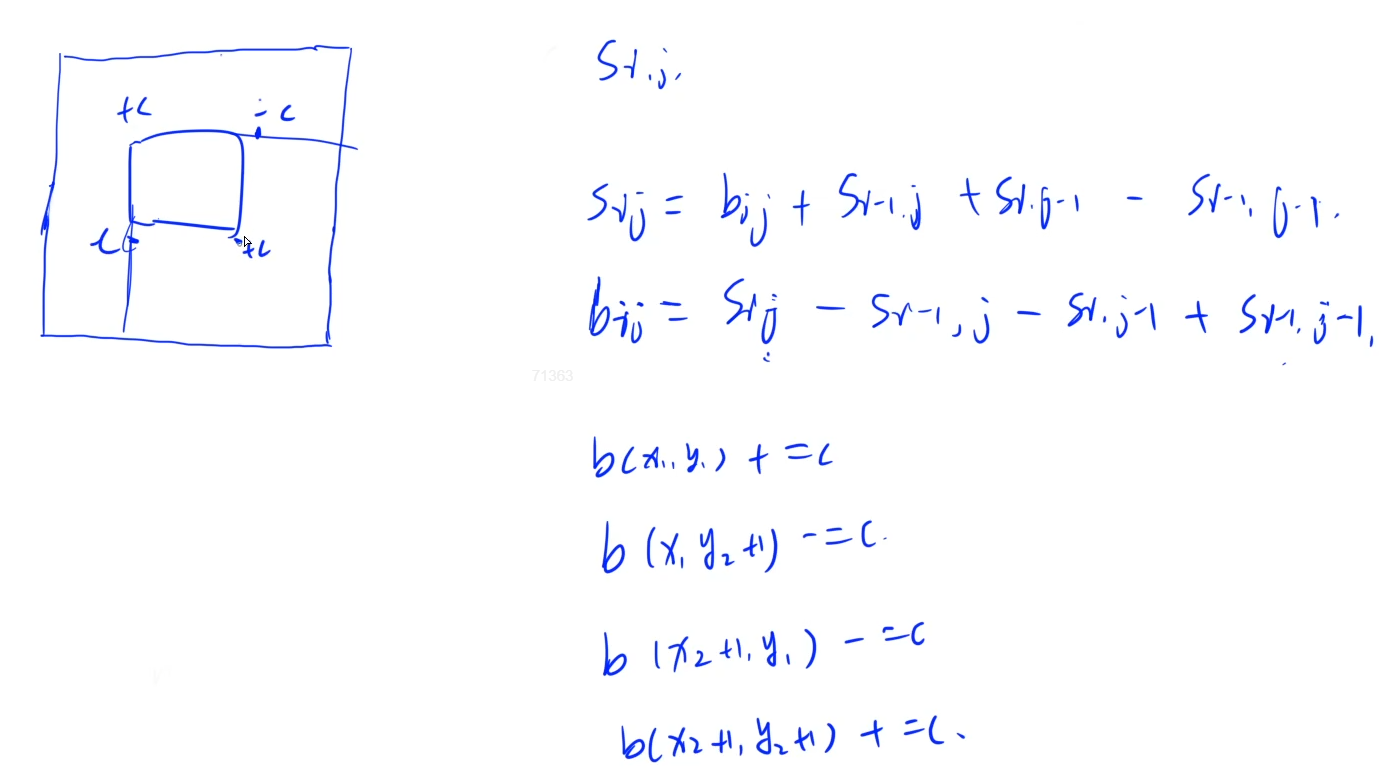 +c -c
-c +c
Si,j.
Sij = bij + Si-1,j + Si,j-1 - Si-1,j-1.
bij = Sij - Si-1,j - Si,j-1 + Si-1,j-1,
71363
b(x₁,y₁) + =c
b(x₁ y₂+1) -=c.
b(x₂+1,y₁) -=c
b(x₂+1,y₂+1) + =c.